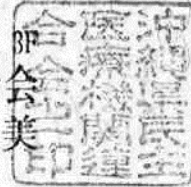 沖縄県民主
医療機関連
合会之印
会美